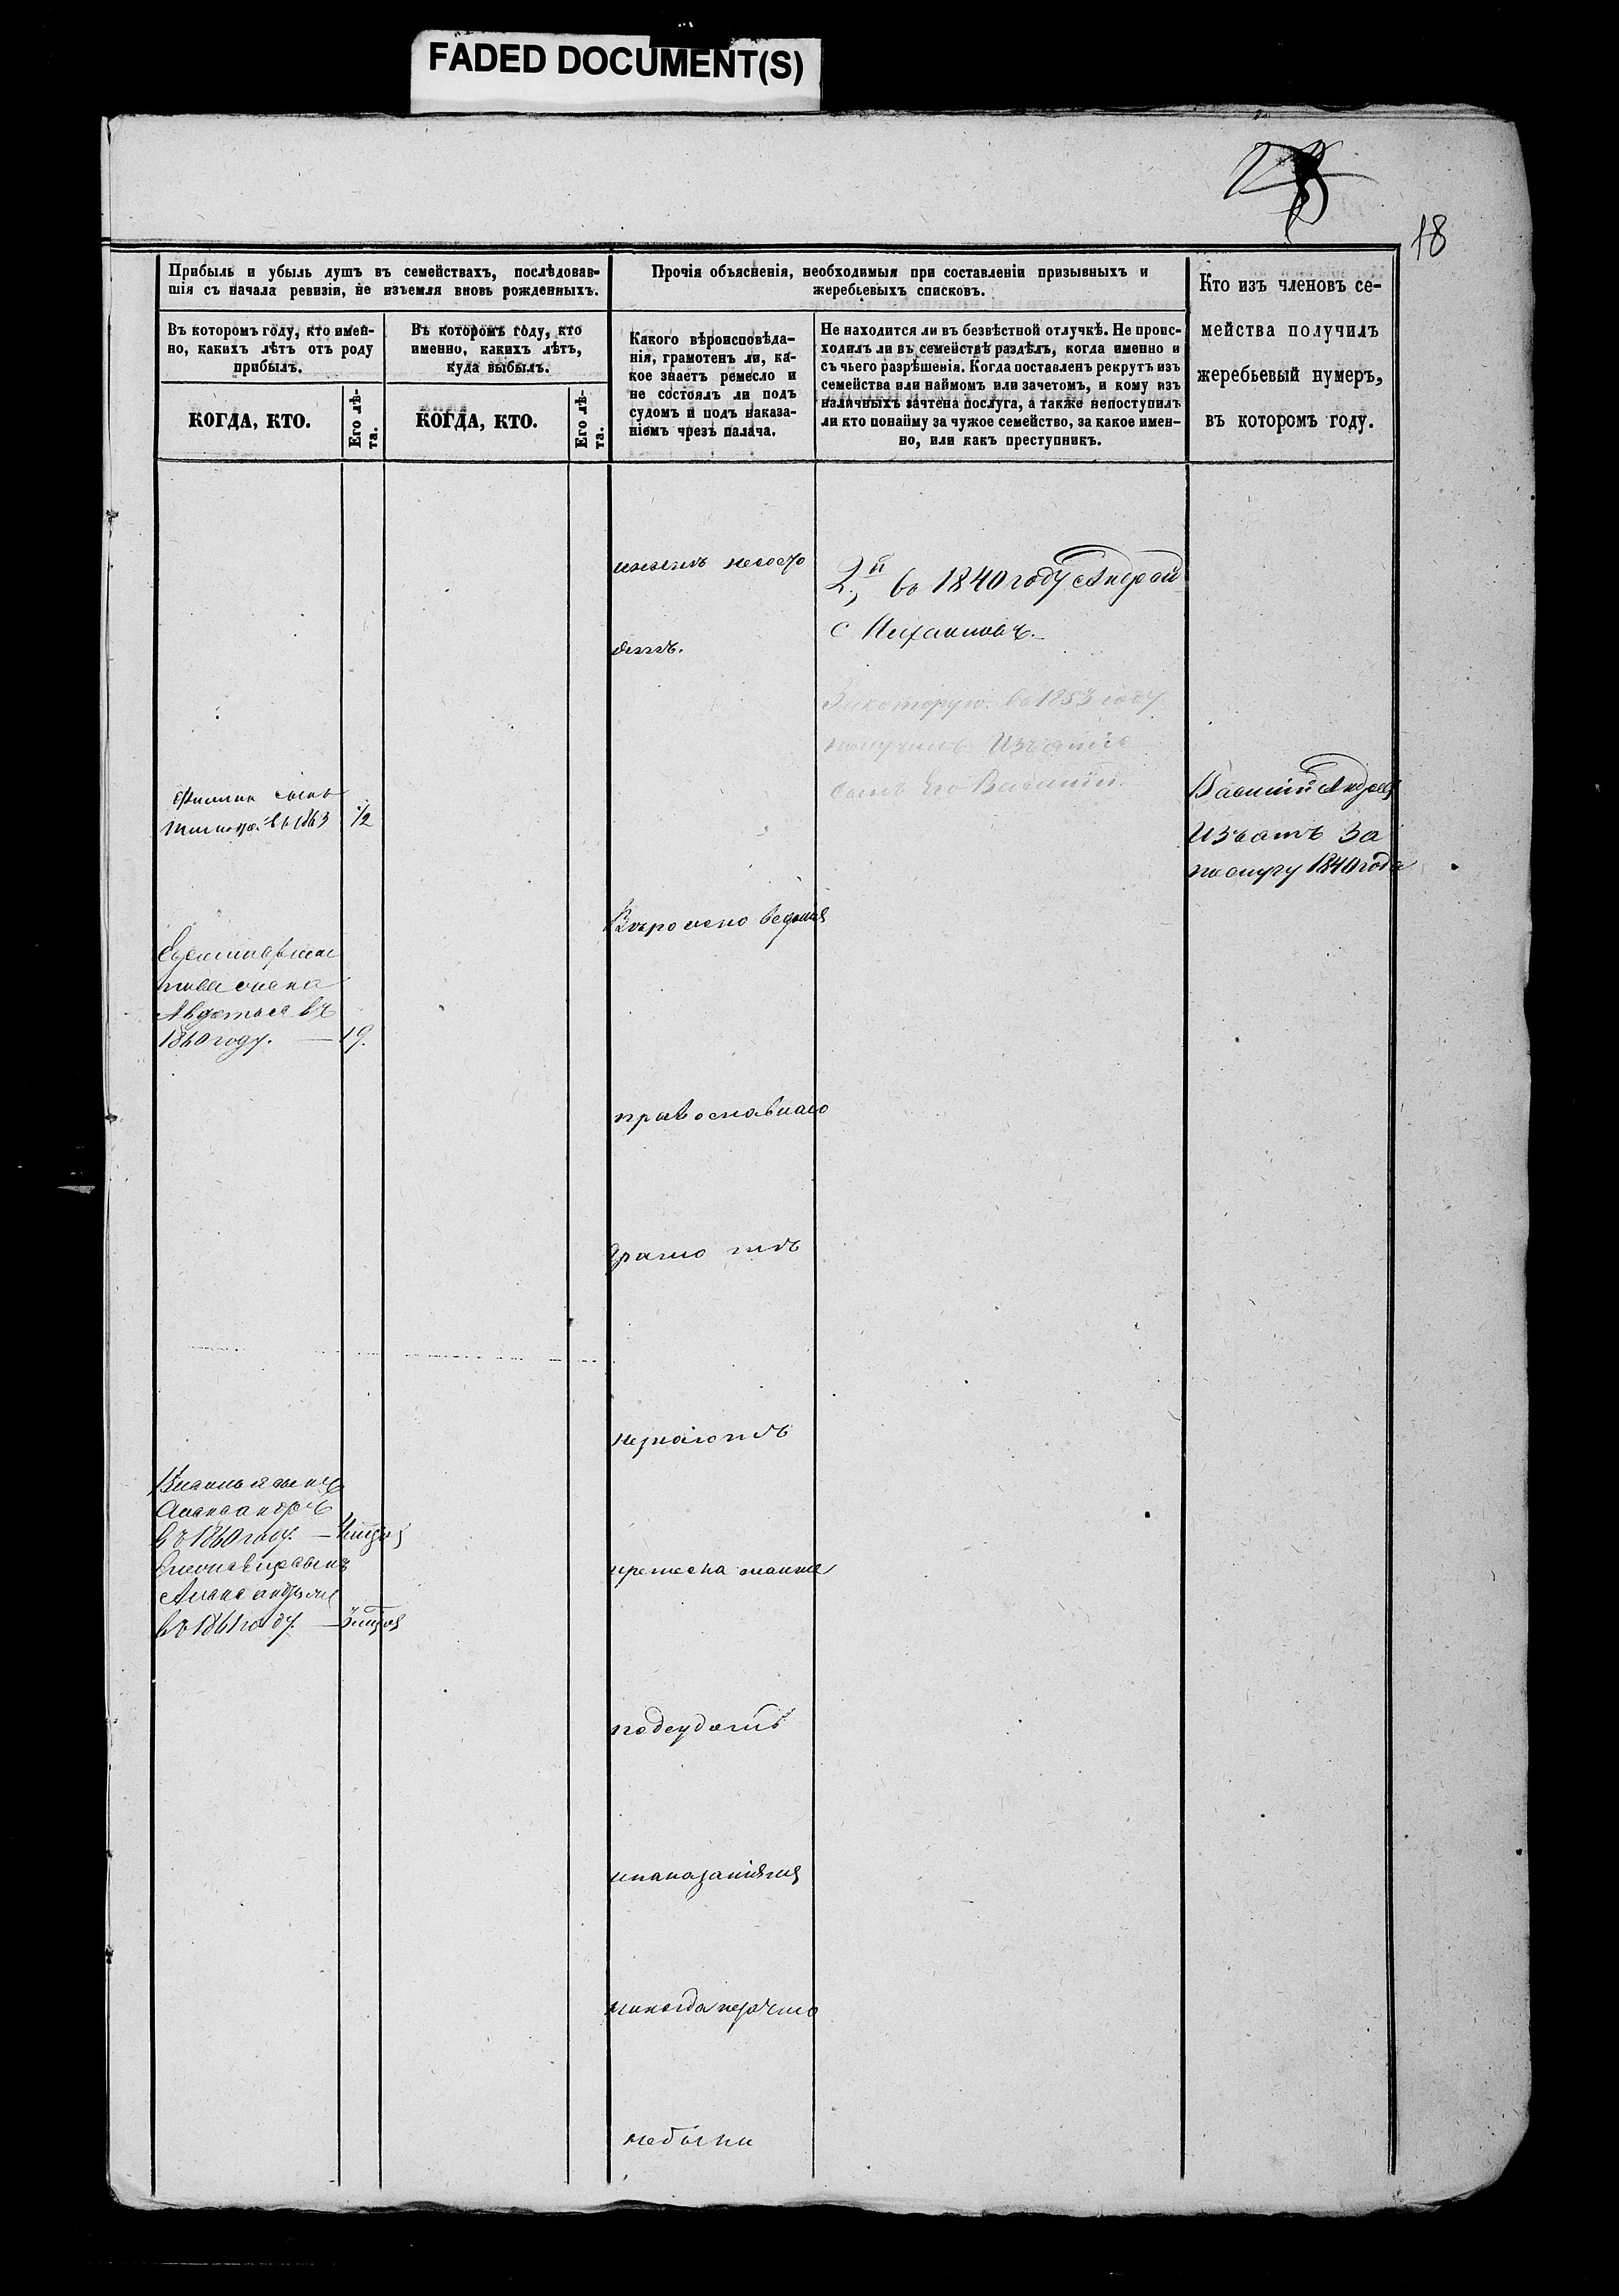 FADED DOCUMENT(S)
18
Прибыль и убыль душъ въ семействахъ, послѣдовав-
шія съ начала ревизіи, не изъемля вновь рожденныхъ.
Въ которомъ году, кто имен-
но, какихъ лѣтъ отъ роду
прибылъ.
КОГДА, КТО.
Его лѣ-
та.
Въ которомъ году, кто
именно, какихъ лѣтъ,
куда выбылъ.
КОГДА, КТО.
Его лѣ-
та.
Прочія объясненія, необходимыя при составленіи призывныхъ и
жеребьевыхъ списковъ.
Какого вѣроисповѣда-
нія, грамотенъ ли, ка-
кое знаетъ ремесло и
не состоялъ ли подъ
судомъ и подъ наказа-
ніемъ чрезъ палача.
Не находится ли въ безвѣстной отлучкѣ. Не проис-
ходилъ ли въ семействѣ раздѣлъ, когда именно и
съ чьего разрѣшенія. Когда поставленъ рекрутъ изъ
семейства или наймомъ или зачетомъ, и кому изъ
наличныхъ зачтена послуга, а также непоступилъ
ли кто понайму за чужое семейство, за какое имен-
но, или какъ преступникъ.
Кто изъ членовъ се-
мейства получилъ
жеребьевый нумеръ,
въ которомъ году.
сынъ
в 1863
1/2
Авдотья въ
1860 году. — 19.
сынъ
Александръ
въ 1860 году.
сынъ
въ 1861 году.
Вѣроисповеданія
православнаго
грамотѣ
незнаютъ
ремесла
подсудомъ
инаказаніемъ
никогда
небыли
2й въ 1840 году Андрей
Михаиловъ.
Закоторую въ 1853 году
получилъ Изъятіе
сынъ Его Василий.
Василий Андреев
Изъятъ за
послугу 1840 года